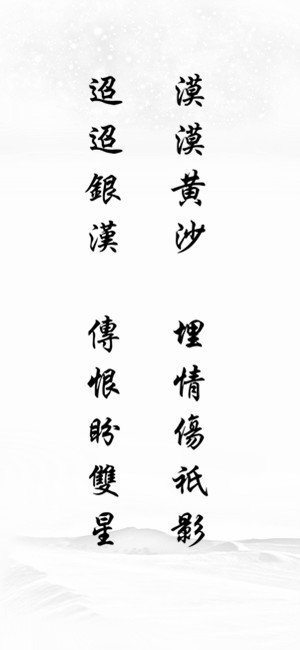 漠漠黃沙 埋情傷祇影
迢迢銀漢 傳恨盼雙星